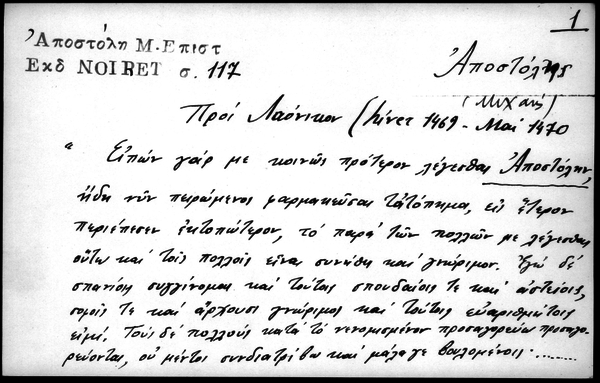 1
Ἀποστόλη Μ. Επιστ
Εκδ NOIRET σ. 117
Ἀποστόλης
(Μιχαήλ)
Πρός Λαόνικον (hiver 1469 - Mai 1470
"Εἰπών γάρ με κοινῶς πρότερον λέγεσθαι Ἀποστόλην,
ἤδη νῦν πειρώμενος φαρμακεῦσαι τἀτόπημα, εἰς ἕτερον
περιέπεσεν ἐκτοπώτερον, τό παρά τῶν πολλῶν με λέγεσθαι
οὕτω καί τοῖς πολλοῖς εἶναι συνήθη καί γνώριμον. Ἐγώ δέ
σπανίοις συγγίνομαι καί τούτοις σπουδαίοις τε καί ἀστείοις,
σοφοῖς τε καί ἄρχουσι γνώριμος καί τούτοις εὐαριθμήτοις
εἰμί. Τούς δέ πολλούς κατά τό νενομισμένον προσαγορεύω προσαγο-
ρεύοντας, οὐ μέντοι συνδιατρίβω καί μάλα γε βουλομένοις .......